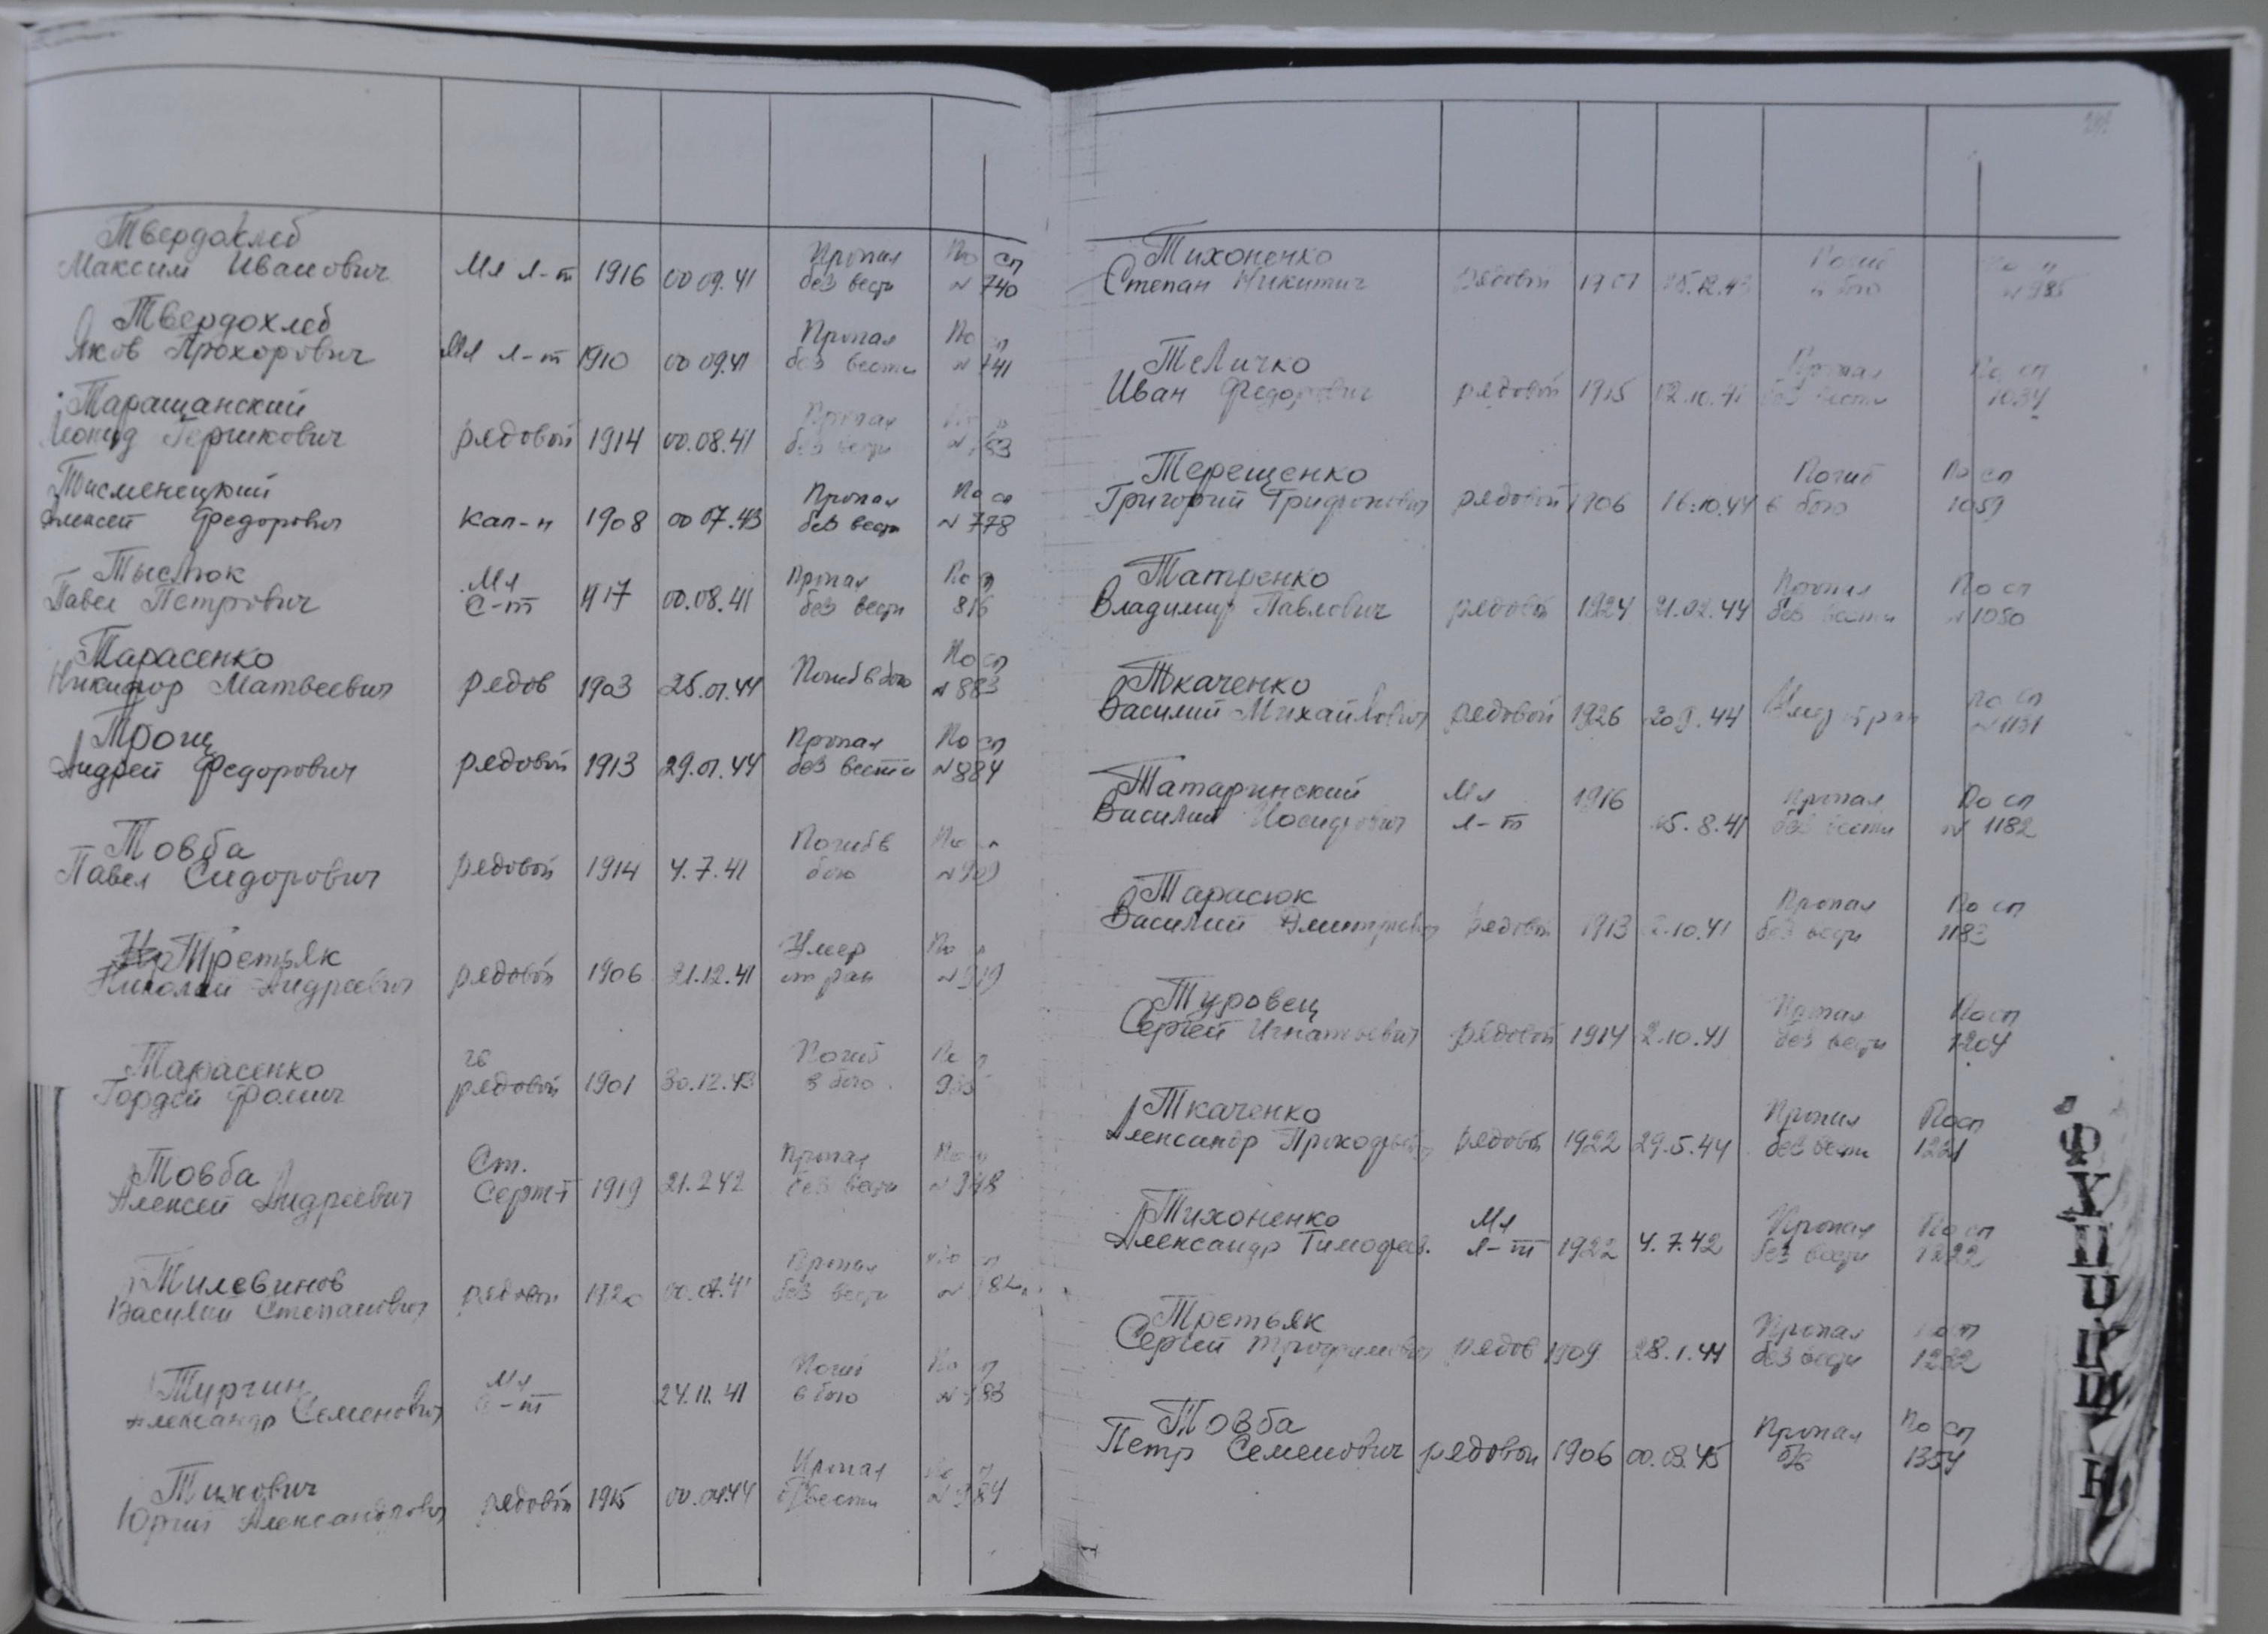 Твердохлеб
Максим Иванович Мл л-т 1916 00 09.41 Пропал без вести По сп № 740
Твердохлеб
Яков Прохорович Мл л-т 1910 00 09.41 Пропал без вести По сп № 741
Таращанский
Леонид Гершкович рядовой 1914 00.08.41 Пропал без вести
Тисменецкий
Алексей Федорович Кап-н 1908 00 07.43 Пропал без вести По сп № 778
Тыслюк
Павел Петрович Мл С-т 1917 00.08.41 Пропал без вести По сп 816
Тарасенко
Никифор Матвеевич рядов 1903 25.01.44 Погиб в бою По сп № 883
Трощ
Андрей Федорович рядовой 1913 29.01.44 Пропал без вести По сп № 884
Товба
Павел Сидорович рядовой 1914 4.7.41 Погиб в бою По сп № 909
Третьяк
Николай Андреевич рядовой 1906 21.12.41 Умер от ран По сп № 919
Тарасенко
Гордей Фомич гв рядовой 1901 30.12.43 Погиб в бою По сп
Товба
Алексей Андреевич Ст. Серж-т 1919 21.2 42 Пропал без вести По сп № 948
Тилевинов
Василий Степанович рядовой 1920 00.07.41 Пропал без вести По сп
Турчин
Александр Семенович Мл С-т 24.11.41 Погиб в бою По сп
Тихович
Юрий Александрович рядовой 1915 00.04.44 Пропал б/вести По сп № 984
Тихоненко
Степан Никитич рядовой 1901 Погиб в бою По сп № 985
Теличко
Иван Федорович рядовой 1915 12.10.41 Пропал без вести По сп 1034
Терещенко
Григорий Трифонович рядовой 1906 16.10.44 Погиб в бою По сп 1059
Татренко
Владимир Павлович рядовой 1924 21.02.44 Пропал без вести По сп № 1080
Ткаченко
Василий Михайлович рядовой 1926 20 9. 44 Умер от ран По сп № 1131
Татаринский
Василий Иосифович Мл л-т 1916 15.8.41 Пропал без вести По сп № 1182
Тарасюк
Василий Дмитриевич рядовой 1913 2.10.41 Пропал без вести По сп 1183
Туровец
Сергей Игнатьевич рядовой 1914 2.10.41 Пропал без вести По сп 1204
Ткаченко
Александр Прокофьевич рядовой 1922 29.5.44 Пропал без вести По сп 1221
Тихоненко
Александр Тимофеев. Мл л-т 1922 4.7.42 Пропал без вести По сп 1222
Третьяк
Сергей Трофимович рядов 1909 28.1.44 Пропал без вести По сп 1232
Товба
Петр Семенович рядовой 1906 00.03.45 Пропал б/в По сп 1354
Ф
Х
Ц